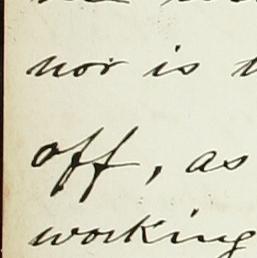 nor is
off, as
working